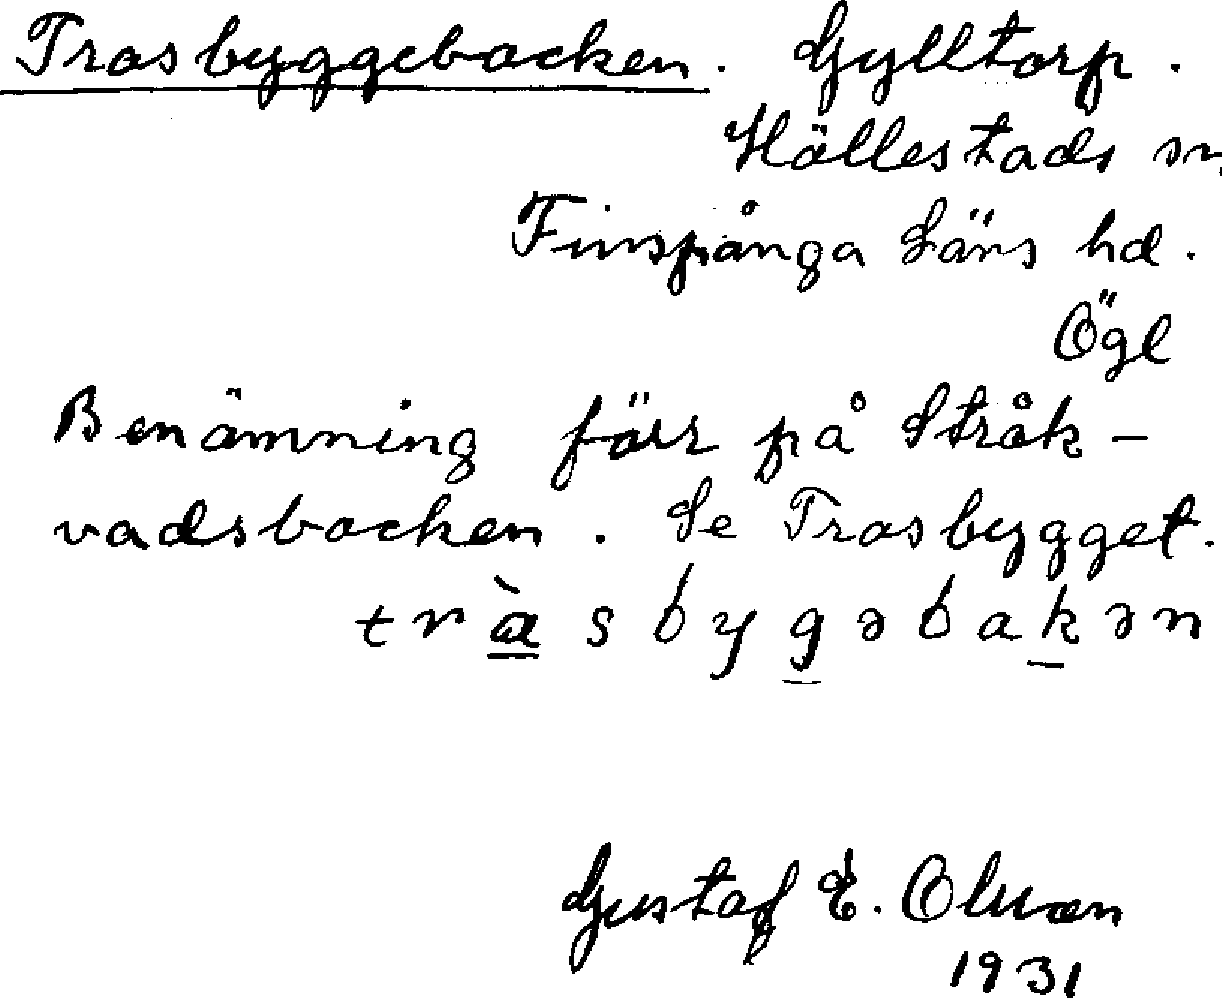 Trasbyggebacken. Gylltorp.
Hällestads sn,
Finspånga Läns hd.
Ögl
Benämning förr på Stråk-
vadsbacken. Se Trasbygget.
tràsbygəbakən
Gustaf E. Olsson
1931